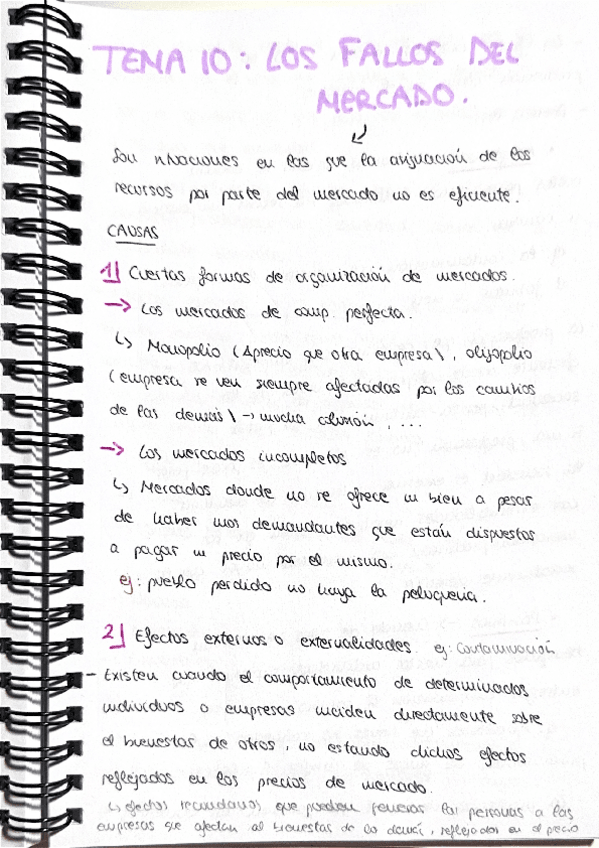 TEMA 10: LOS FALLOS DEL
MERCADO.
Son situaciones en las que la asignación de los
recursos por parte del mercado no es eficiente.
CAUSAS
1) Ciertas formas de organización de mercados.
→ Los mercados de comp. perfecta.
↳ Monopolio (↑precio que otra empresa), oligopolio
(empresa se ven siempre afectadas por los cambios
de las demás) → mucha colusión, ...
→ Los mercados incompletos
↳ Mercados donde no se ofrece un bien a pesar
de haber unos demandantes que están dispuestos
a pagar un precio por el mismo.
ej: pueblo perdido no haya la peluquería.
2) Efectos externos o externalidades. ej: Contaminación
- Existen cuando el comportamiento de determinados
individuos o empresas inciden directamente sobre
el bienestar de otros, no estando dichos efectos
reflejados en los precios de mercado.
↳ efectos secundarios que pueden las personas a las
empresas que afectan al bienestar de lo demás, reflejados en el precio